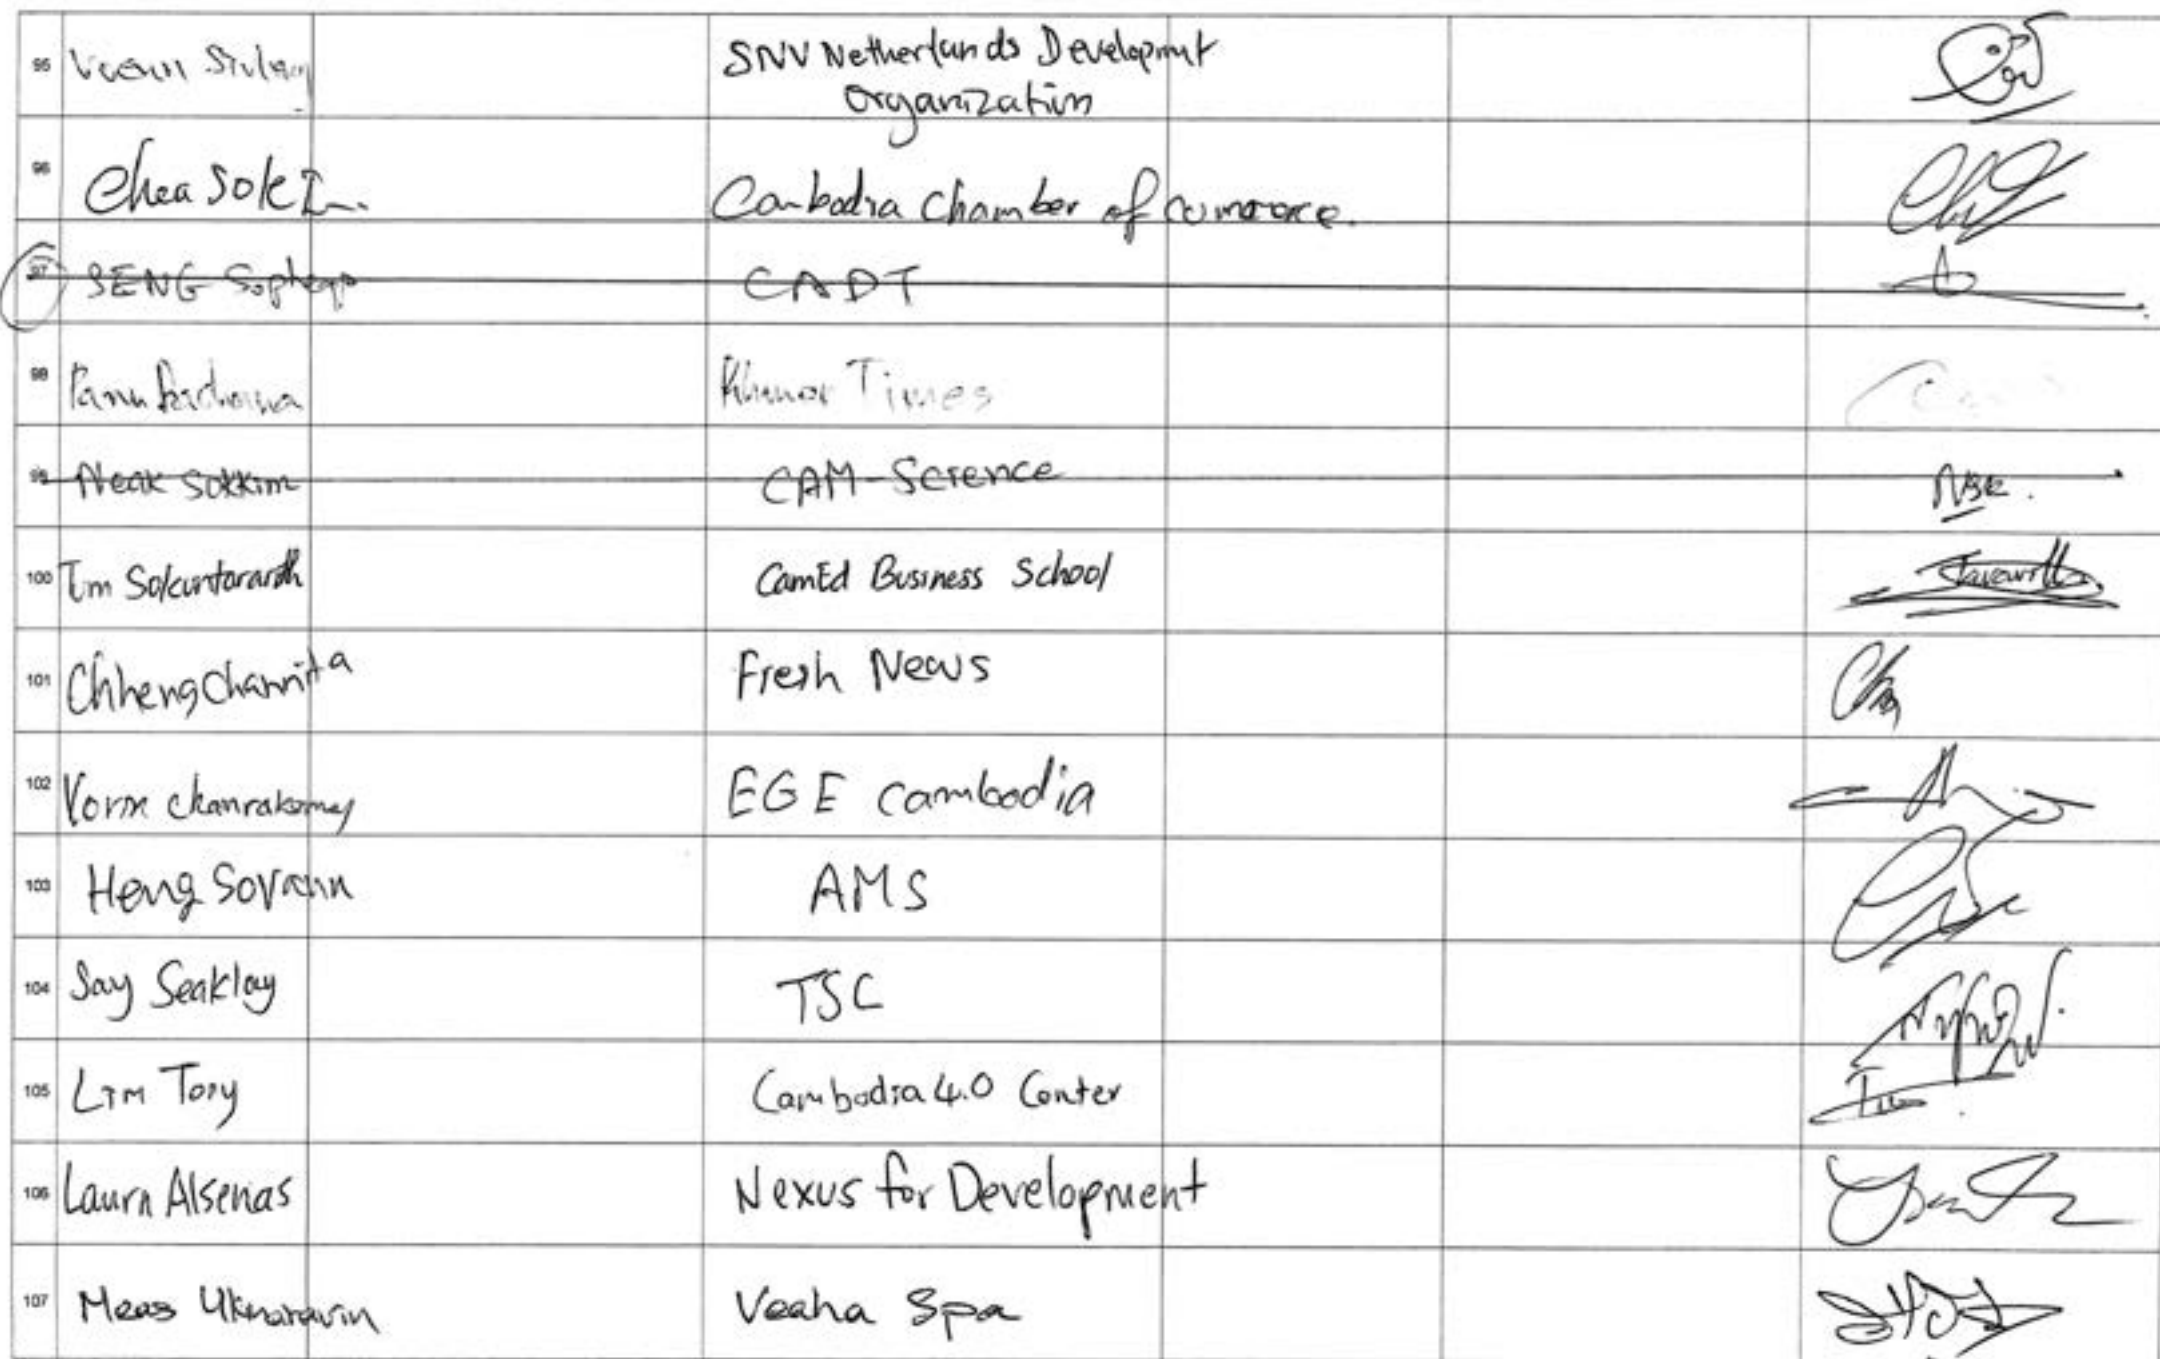 95 SNV Netherlands Development
Organization
96 Chea Sok Cambodia Chamber of commerce.
97 SENG Sopheap CADT
98 Khmer Times
99 Neak Sokkim CAM-Science NSK.
100 Im Sokuntararath CamEd Business School
101 Chheng Channita Fresh News
102 Vorm chanraksmey EGE Cambodia
103 Heng Sovann AMS
104 Say Seaklay TSC
105 Lim Tory Cambodia 4.0 Center
106 Laura Alsenas Nexus for Development
107 Meas Veaha Spa